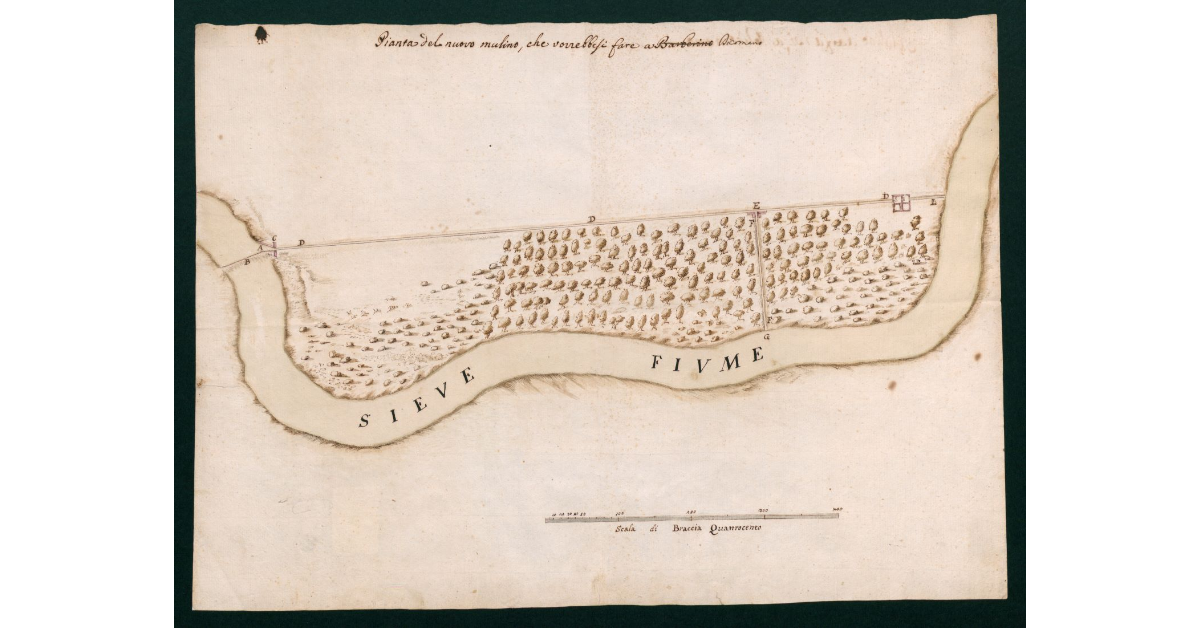 Pianta del nuovo mulino, che vorrebbesi fare a Barberino
D
E
F
D
L
D
C
D
B
G
SIEVE FIVME
100 200 300 400
Scala di Braccia Quattrocento